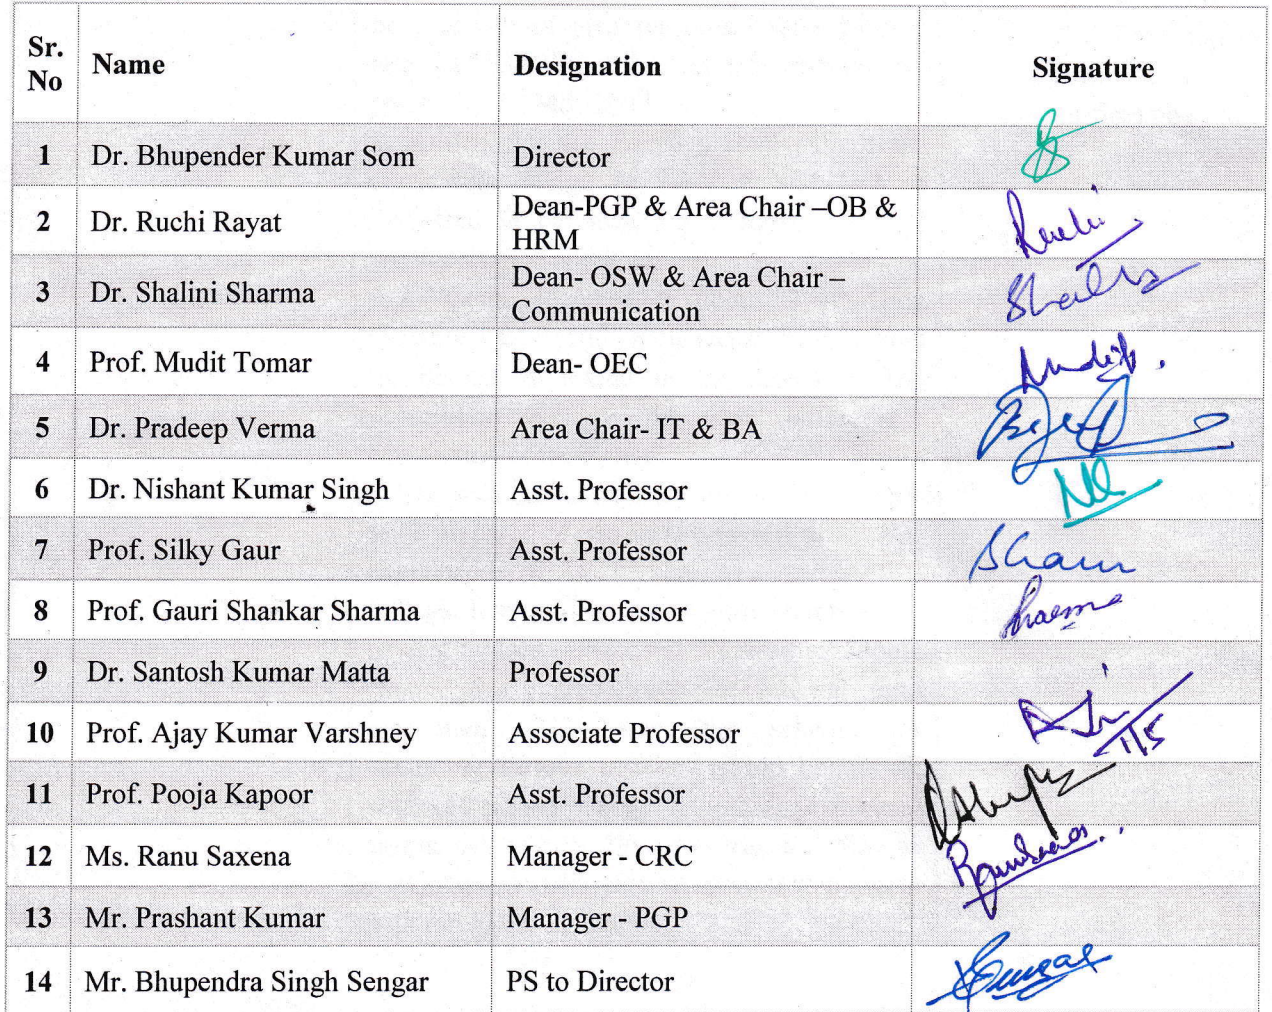 Sr. No Name Designation Signature
1 Dr. Bhupender Kumar Som Director
2 Dr. Ruchi Rayat Dean-PGP & Area Chair –OB & HRM Ruchi
3 Dr. Shalini Sharma Dean- OSW & Area Chair – Communication
4 Prof. Mudit Tomar Dean- OEC Mudit.
5 Dr. Pradeep Verma Area Chair- IT & BA
6 Dr. Nishant Kumar Singh Asst. Professor
7 Prof. Silky Gaur Asst. Professor
8 Prof. Gauri Shankar Sharma Asst. Professor
9 Dr. Santosh Kumar Matta Professor
10 Prof. Ajay Kumar Varshney Associate Professor 1/5
11 Prof. Pooja Kapoor Asst. Professor
12 Ms. Ranu Saxena Manager - CRC
13 Mr. Prashant Kumar Manager - PGP
14 Mr. Bhupendra Singh Sengar PS to Director Sengar